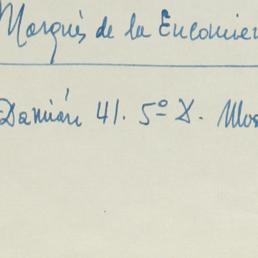 Marqués de la Encomien
Damián 41. 5º D. Mos